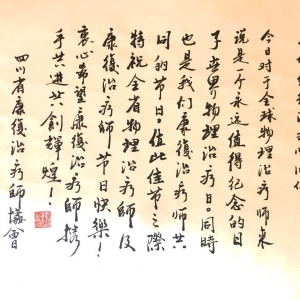 今日对于全球物理治疗师来
说是一个永远值得纪念的日
子世界物理治疗日。同時
也是我们康復治疗师共
同的节日。值此佳节之際
特祝全省物理治疗师及
康復治疗师节日快樂！
衷心希望康復治疗师携
手共进共創輝煌！
四川省康復治疗师協會